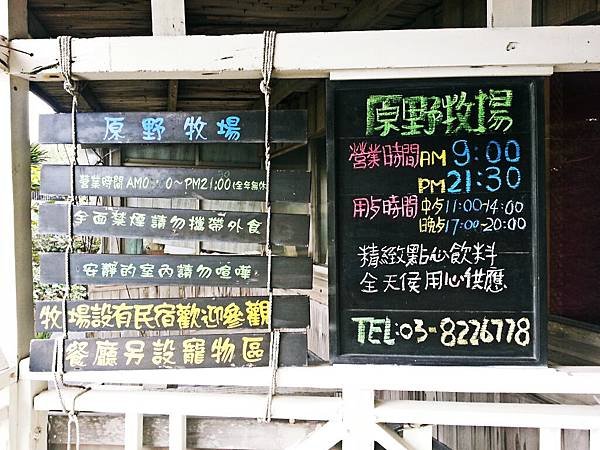 原野牧場
營業時間AM0 :00～PM21:00(全年無休
全面禁煙請勿攜帶外食
安靜的室內請勿喧嘩
牧場設有民宿歡迎參觀
餐廳另設寵物區
原野牧場
營業時間AM 9:00
PM 21:30
用歺時間 中歺11:00-14:00
晚歺17:00-20:00
精緻點心飲料
全天侯用心供應
TEL:03-8226778